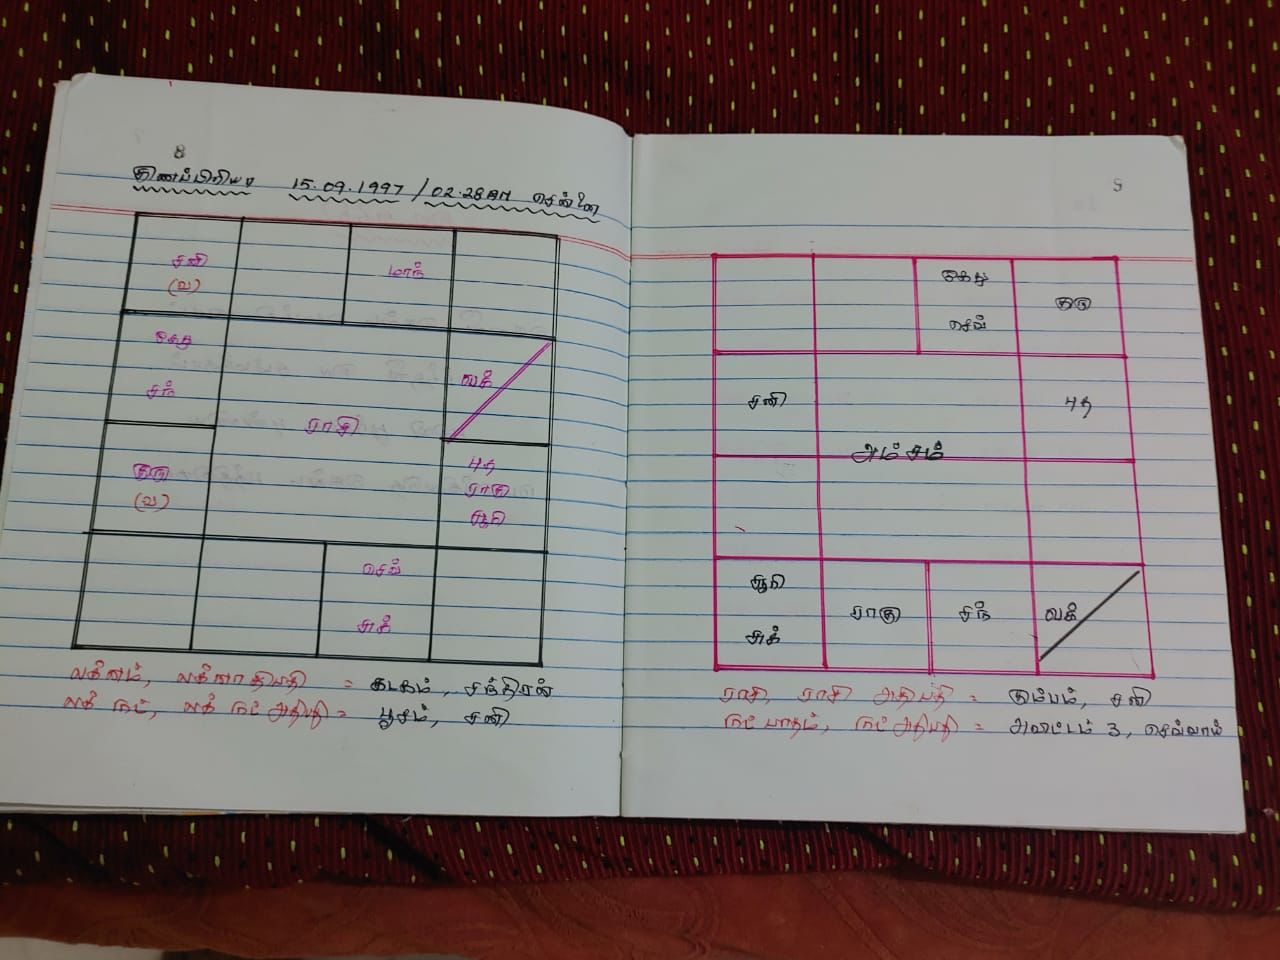 8
குணப்பிரியா 15.09.1997 / 02.28 AM சென்னை
சனி
(வ)
மாந்
கேது
சந்
லக்
ராசி
குரு
(வ)
புத
ராகு
சூரி
செவ்
சுக்
லக்னம், லக்னாதிபதி = கடகம், சந்திரன்
லக் நட், லக் நட் அதிபதி = பூசம், சனி
கேது
செவ்
குரு
சனி
புத
அம்சம்
சூரி
சுக்
ராகு
சந்
லக்
ராசி, ராசி அதிபதி = கும்பம், சனி
நட் பாதம், நட் அதிபதி = அவிட்டம் 3, செவ்வாய்